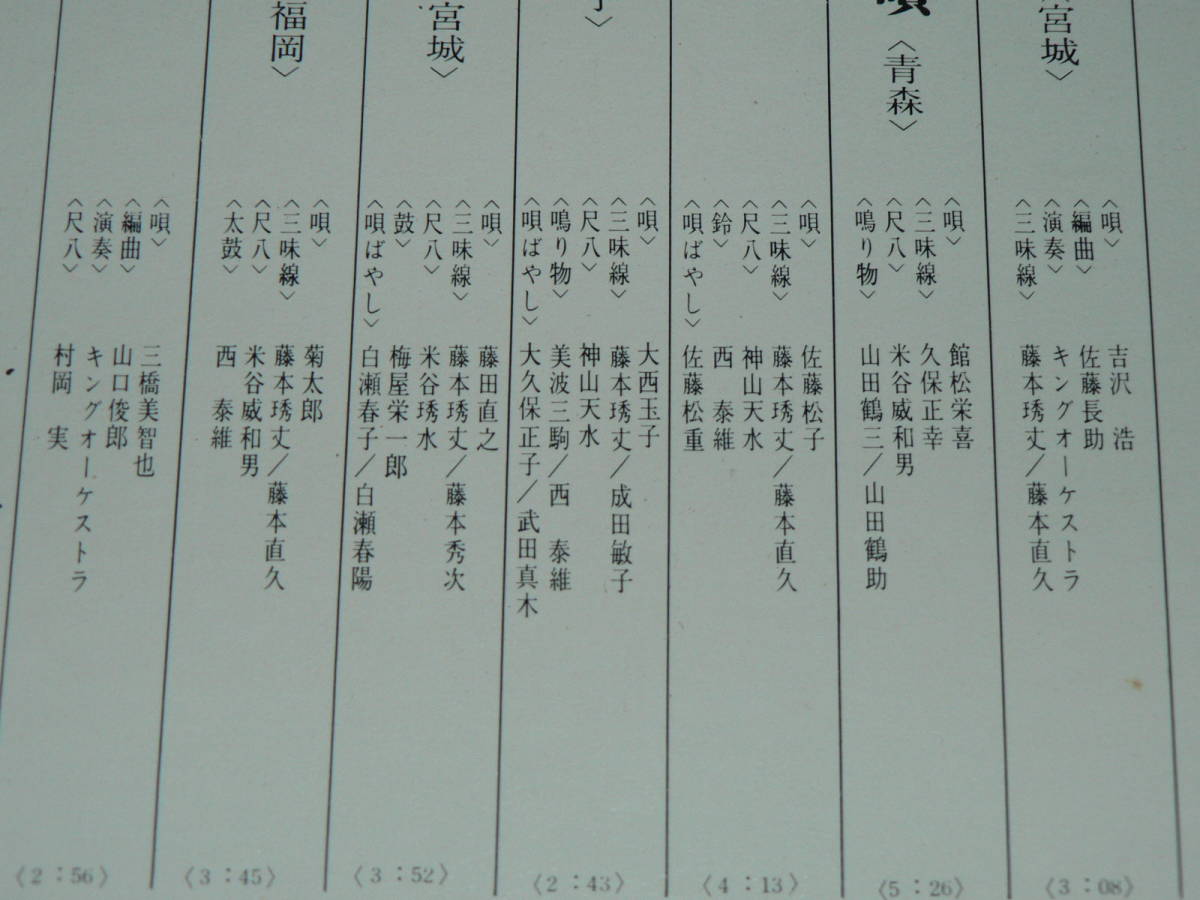 宮城〉
〈唄〉 吉沢 浩
〈編曲〉 佐藤長助
〈演奏〉 キングオーケストラ
〈三味線〉 藤本琇丈/藤本直久
〈3:08〉
唄〈青森〉
〈唄〉 館松栄喜
〈三味線〉 久保正幸
〈尺八〉 米谷威和男
〈鳴り物〉 山田鶴三/山田鶴助
〈5:26〉
〈唄〉 佐藤松子
〈三味線〉 藤本琇丈/藤本直久
〈尺八〉 神山天水
〈鈴〉 西 泰維
〈唄ばやし〉 佐藤松重
〈4:13〉
〉
〈唄〉 大西玉子
〈三味線〉 藤本琇丈/成田敏子
〈尺八〉 神山天水
〈鳴り物〉 美波三駒/西 泰維
〈唄ばやし〉 大久保正子/武田真木
〈2:43〉
宮城〉
〈唄〉 藤田直之
〈三味線〉 藤本琇丈/藤本秀次
〈尺八〉 米谷琇水
〈鼓〉 梅屋栄一郎
〈唄ばやし〉 白瀬春子/白瀬春陽
〈3:52〉
福岡〉
〈唄〉 菊太郎
〈三味線〉 藤本琇丈/藤本直久
〈尺八〉 米谷威和男
〈太鼓〉 西 泰維
〈3:45〉
〈唄〉 三橋美智也
〈編曲〉 山口俊郎
〈演奏〉 キングオーケストラ
〈尺八〉 村岡 実
〈2:56〉